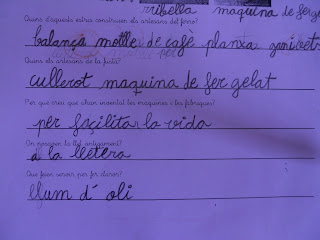 ribella maquina de fer ge
Quins d'aquests estris construïen els artesans del ferro?
balança motlle de cafè planxa ganivets
Quins els artesans de la fusta?
cullerot maquina de fer gelat
Per què creu que s'han inventat les màquines i les fàbriques?
per façilitar la vida
On posaven la llet antigament?
a la lletera
Què feien servir per fer llum?
llum d' oli